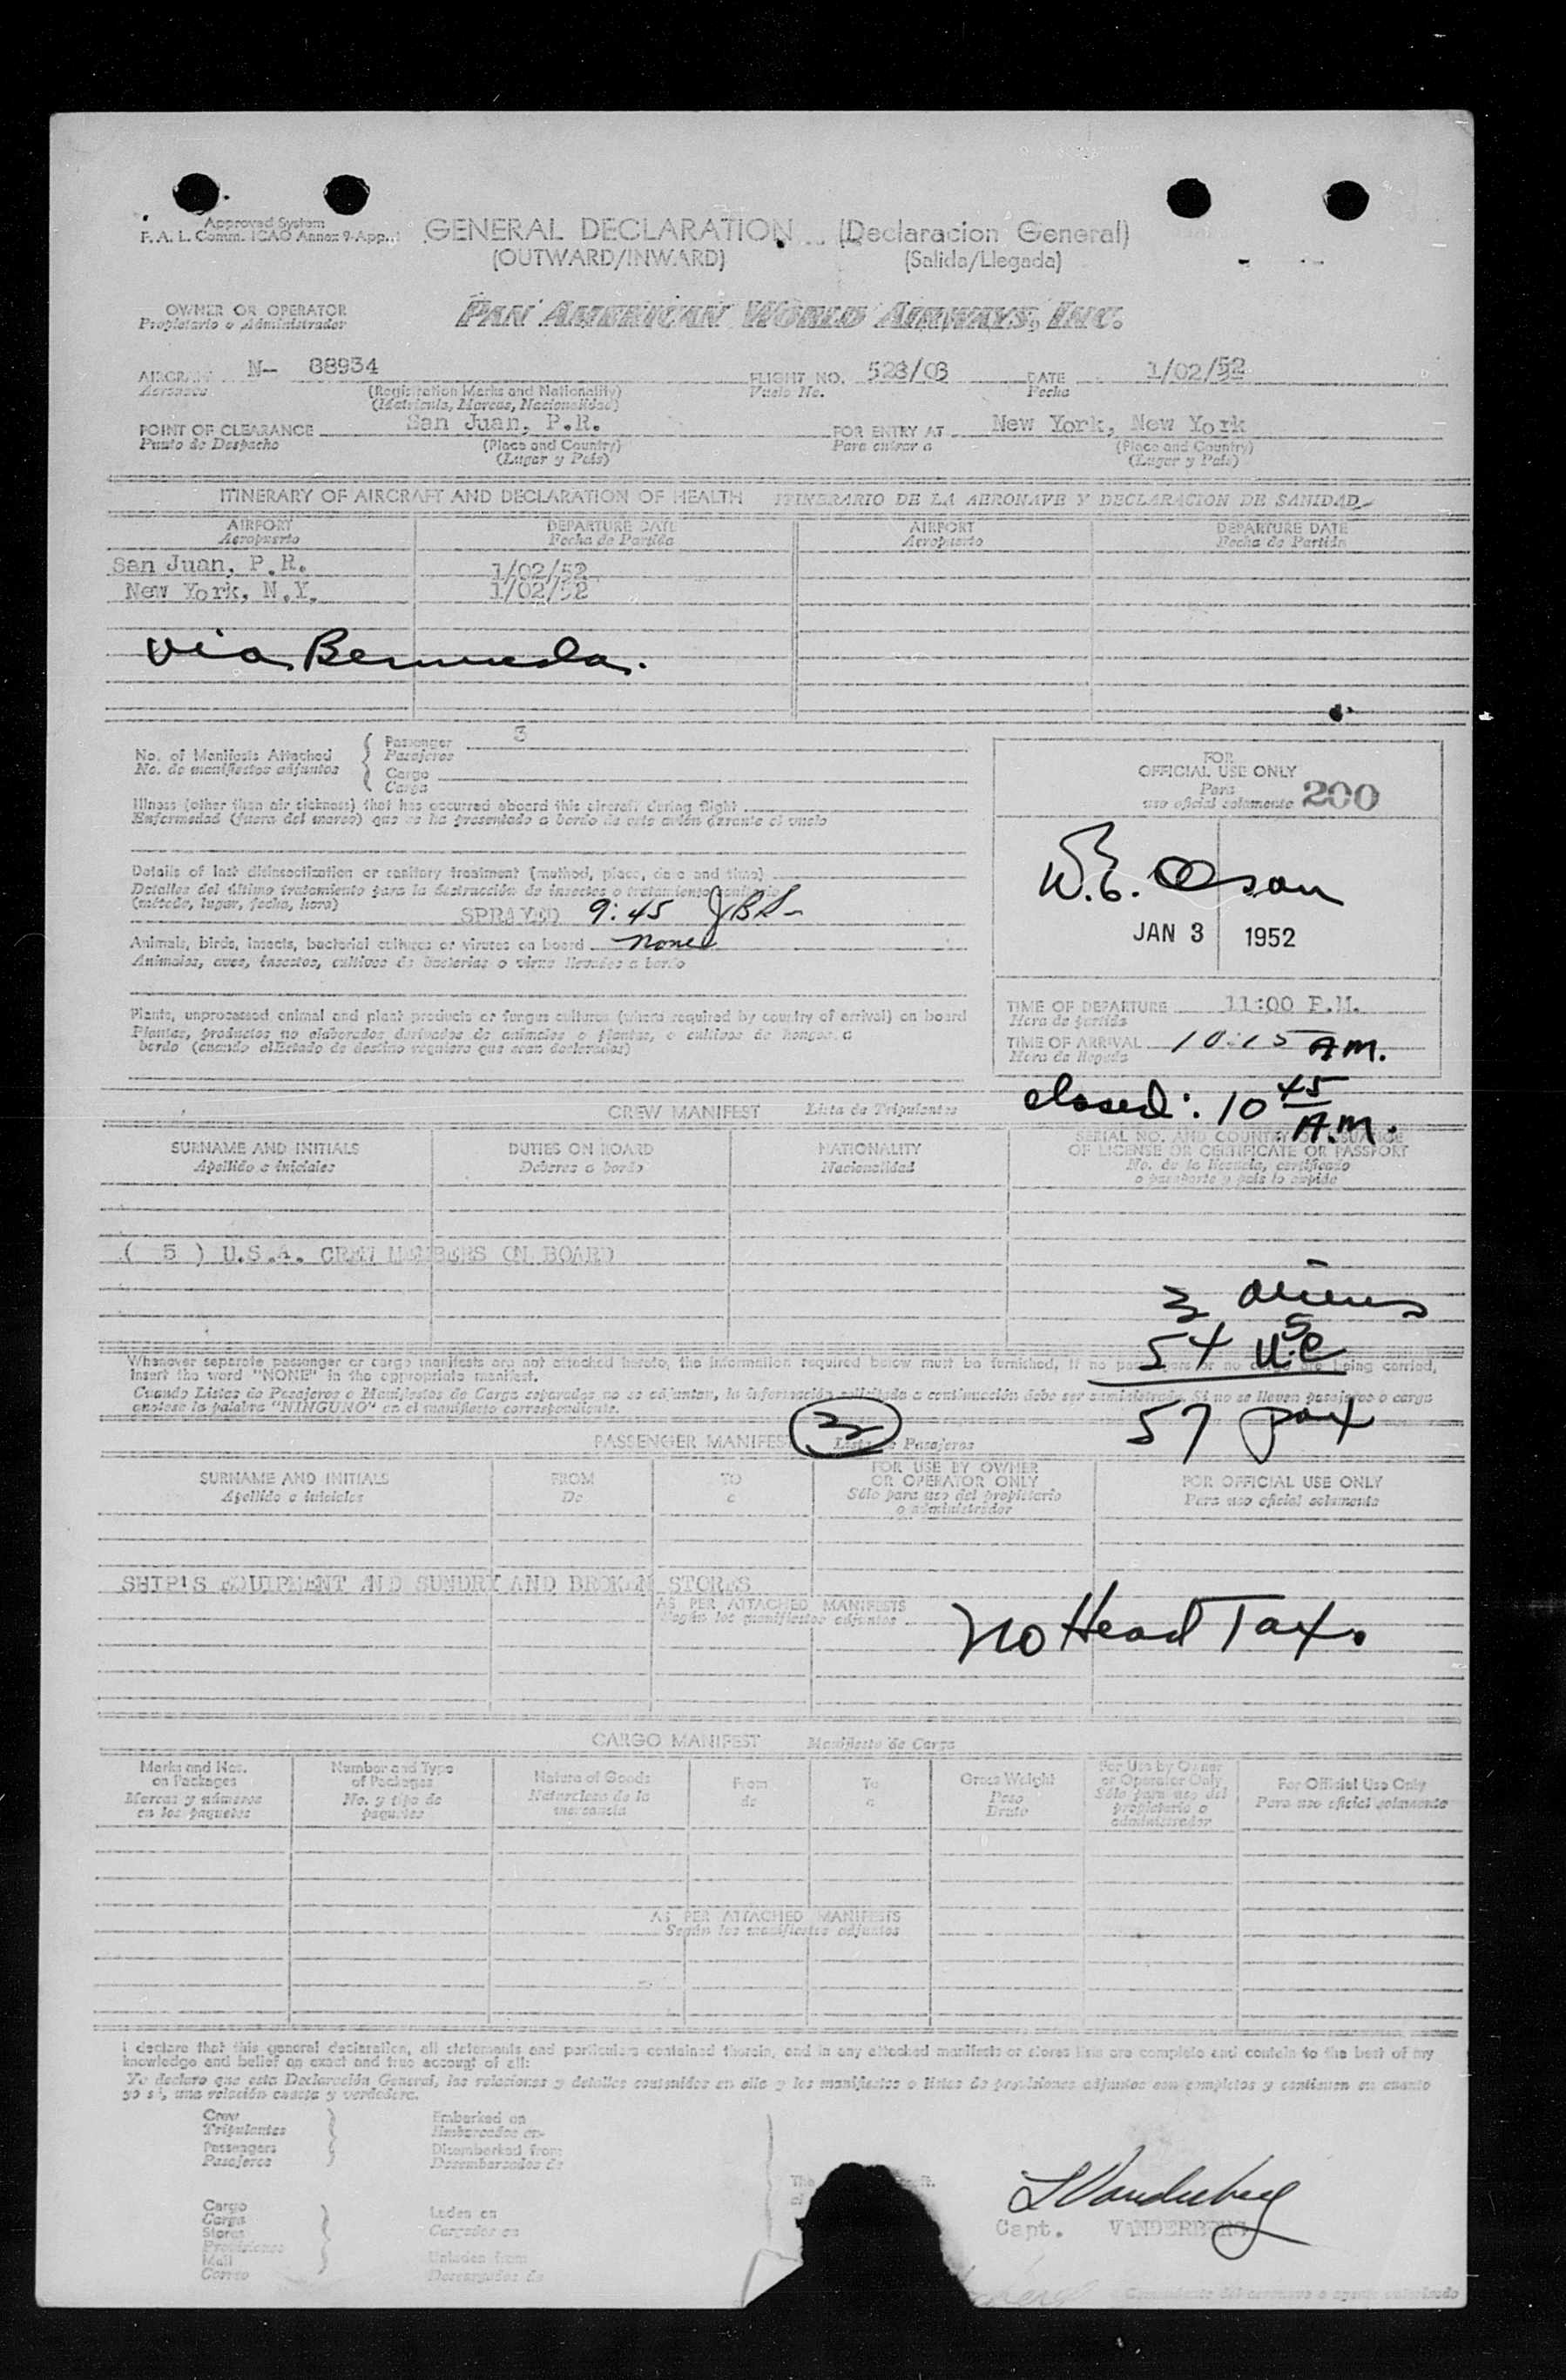 Approved System
F. A. L. Comm. ICAO Annex 9-App.
GENERAL DECLARATION (Declaracion General)
(OUTWARD/INWARD) (Salida/Llegada)
OWNER OR OPERATOR
Propietario o Administrador
PAN AMERICAN WORLD AIRWAYS, INC.
AIRCRAFT N- 88934 FLIGHT NO. 528/03 DATE 1/02/52
Aeronave (Registration Marks and Nationality) Vuelo No. Fecha
(Matricula, Marcas, Nacionalidad)
POINT OF CLEARANCE San Juan, P.R. FOR ENTRY AT New York, New York
Punto de Despacho (Place and Country) Para entrar a (Place and Country)
(Lugar y País) (Lugar y País)
ITINERARY OF AIRCRAFT AND DECLARATION OF HEALTH ITINERARIO DE LA AERONAVE Y DECLARACION DE SANIDAD
AIRPORT DEPARTURE DATE AIRPORT DEPARTURE DATE
Aeropuerto Fecha de Partida Aeropuerto Fecha de Partida
San Juan, P.R. 1/02/52
New York, N.Y. 1/02/52
via Bermuda.
No. of Manifests Attached
No. de manifiestos adjuntos
Passenger 3
Pasajeros
Cargo
Carga
Illness (other than air sickness) that has occurred aboard this aircraft during flight
Enfermedad (fuera del mareo) que se ha presentado a bordo de este avión durante el vuelo
Details of last disinsectization or sanitary treatment (method, place, date and time)
Detalles del último tratamiento para la destrucción de insectos o tratamiento sanitario
(método, lugar, fecha, hora)
SPRAYED 9:45
Animals, birds, insects, bacterial cultures or viruses on board none
Animales, aves, insectos, cultivos de bacterias o virus llevados a bordo
Plants, unprocessed animal and plant products or fungus cultures (where required by country of arrival) on board
Plantas, productos no elaborados derivados de animales o plantas, o cultivos de hongos a
bordo (cuando el Estado de destino requiera que sean declarados)
FOR
OFFICIAL USE ONLY
Para
uso oficial solamente 200
W.E. Olson
JAN 3 1952
TIME OF DEPARTURE 11:00 P.M.
Hora de partida
TIME OF ARRIVAL 10:15 AM.
Hora de llegada
closed: 10 45 A.M.
CREW MANIFEST Lista de Tripulantes
SURNAME AND INITIALS DUTIES ON BOARD NATIONALITY SERIAL NO. AND COUNTRY OF ISSUANCE
OF LICENSE OR CERTIFICATE OR PASSPORT
Apellido e iniciales Deberes a bordo Nacionalidad No. de la licencia, certificado
o pasaporte y país lo expide
( 5 ) U.S.A. CREW MEMBERS ON BOARD
3 aliens
54 USC
57 pax
Whenever separate passenger or cargo manifests are not attached hereto, the information required below must be furnished, if no passengers or no cargo are being carried,
insert the word "NONE" in the appropriate manifest.
Cuando Listas de Pasajeros o Manifiestos de Carga separados no se adjuntan, la información solicitada a continuación debe ser suministrada. Si no se lleven pasajeros o carga
anotese la palabra "NINGUNO" en el manifiesto correspondiente.
PASSENGER MANIFEST 3 Lista de Pasajeros
SURNAME AND INITIALS FROM TO FOR USE BY OWNER
OR OPERATOR ONLY FOR OFFICIAL USE ONLY
Apellido e iniciales De a Sólo para uso del propietario
o administrador Para uso oficial solamente
SHIP'S EQUIPMENT AND SUNDRY AND BROKEN STORES
AS PER ATTACHED MANIFESTS
Según los manifiestos adjuntos
No Head Tax.
CARGO MANIFEST Manifiesto de Carga
Marks and Nos.
on Packages
Marcas y números
en los paquetes
Number and Type
of Packages
No. y tipo de
paquetes
Nature of Goods
Naturaleza de la
mercancía
From
de
To
a
Gross Weight
Peso
Bruto
For Use by Owner
or Operator Only
Sólo para uso del
propietario o
administrador
For Official Use Only
Para uso oficial solamente
AS PER ATTACHED MANIFESTS
Según los manifiestos adjuntos
I declare that this general declaration, all statements and particulars contained therein, and in any attached manifests or stores lists are complete and contain to the best of my
knowledge and belief an exact and true account of all:
Yo declaro que esta Declaración General, las relaciones y detalles contenidos en ella y los manifiestos o listas de provisiones adjuntos son completos y contienen en cuanto
yo sé, una relación exacta y verdadera.
Crew
Tripulantes
Passengers
Pasajeros
Embarked on
Embarcados en
Disembarked from
Desembarcados de
Cargo
Carga
Stores
Provisiones
Mail
Correo
Laden on
Cargados en
Unladen from
Descargados de
The
L Vanderberg
Capt. VANDERBERG